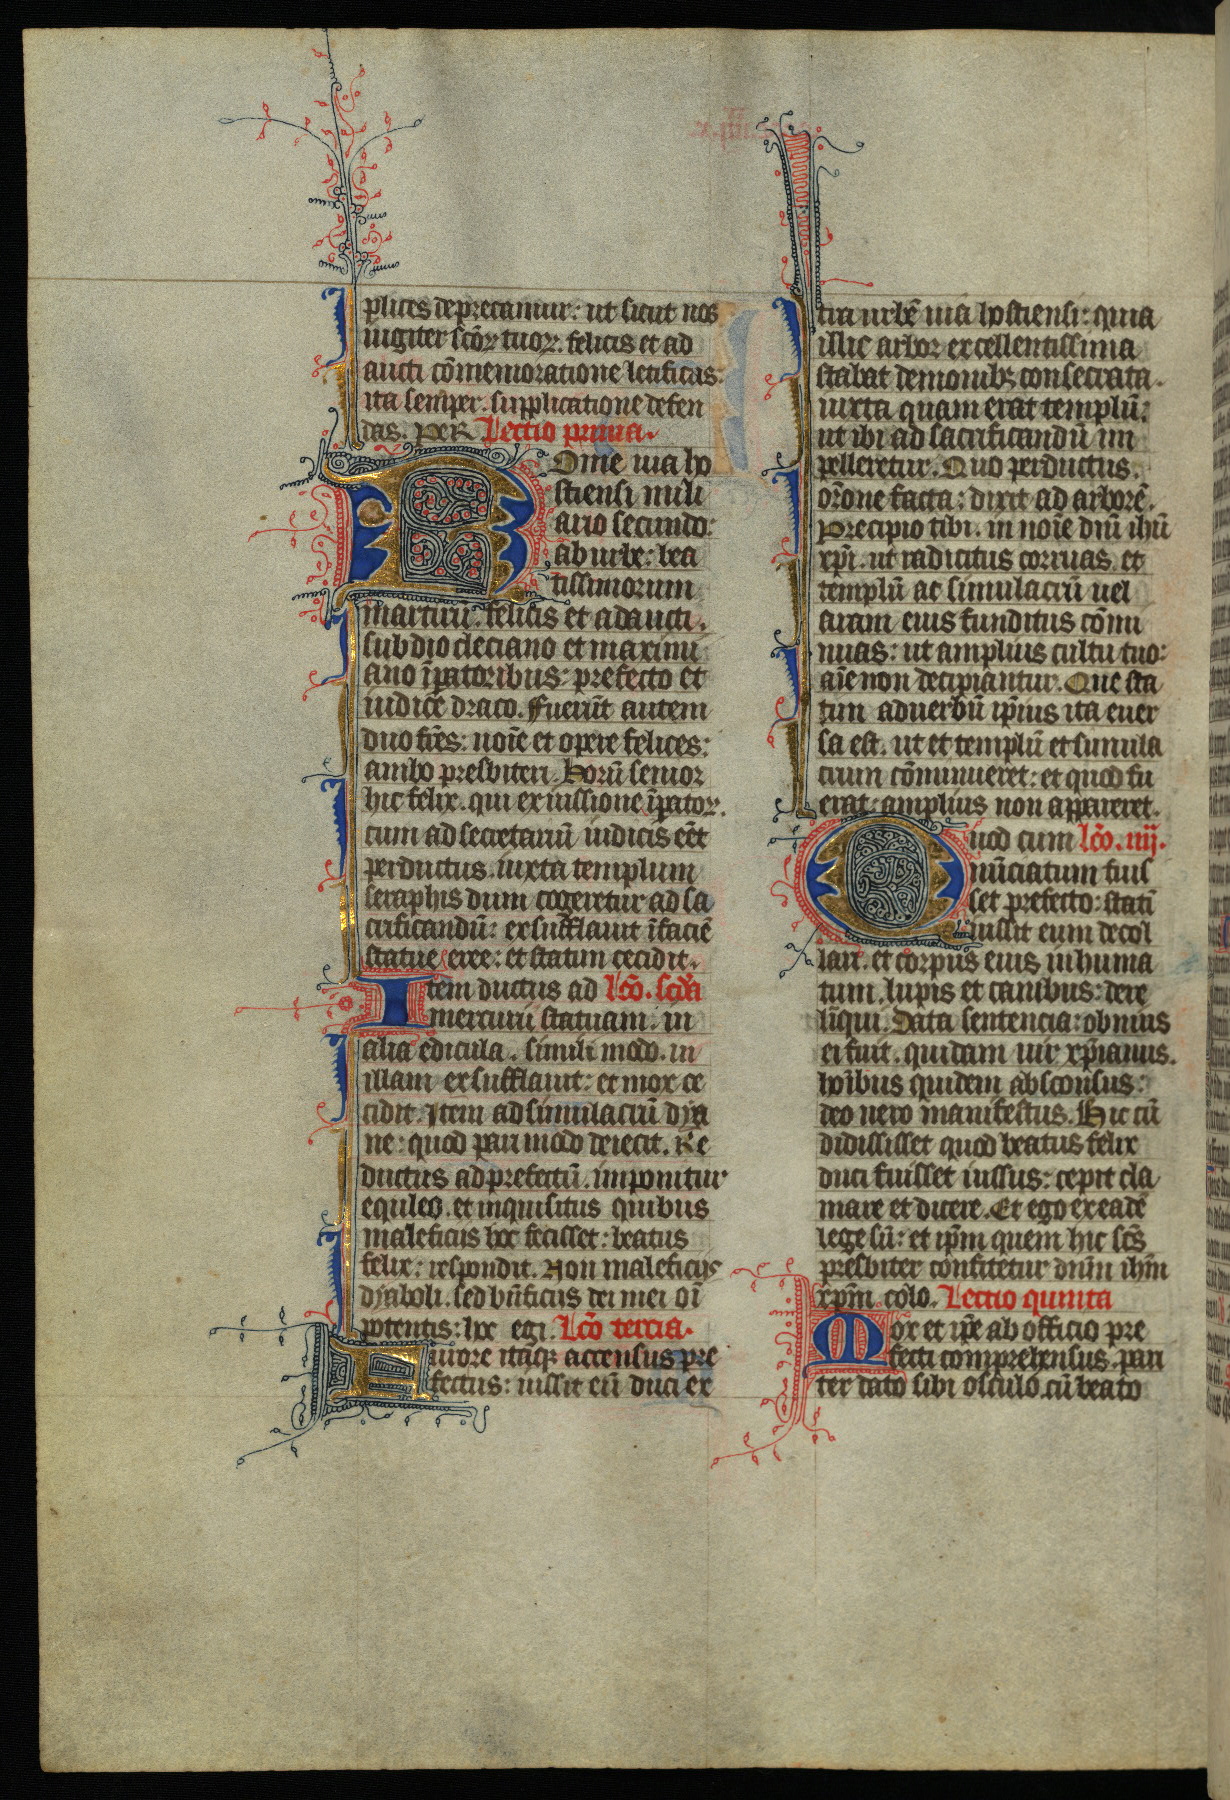 plices deprecamur: ut sicut nos
iugiter scõꝝ tuoꝝ. felicis et ad
aucti cõmemoratione letificas:
ita semper. supplicatione defen
das. Per Lectio prima.
Rome uia ho
stiensi mili
ario secundo:
ab urbe: bea
tissimorum
martirũ. felicis et adaucti.
sub dio cleciano et maximi
ano ĩpatoribus: prefecto et
iudice draco. Fuerũt autem
duo frẽs: noĩe et opere felices:
ambo presbiteri. Horũ senior
hic felix. qui ex iussione ĩpatoꝝ.
cum ad secretariũ iudicis eẽt
perductus. iuxta templum
seraphis dum cogeretur ad sa
crificandũ: exsufflauit ĩ faciẽ
statue eree: et statim cecidit.
Item ductus ad lcõ. scďa
mercurii statuam. in
alia edicula. simili modo. in
illam exsufflauit: et mox ce
cidit. Item ad simulacrũ dya
ne: quod pari modo deiecit. Re
ductus ad prefectũ. imponitur
equleo. et inquisitus quibus
maleficiis hoc fecisset: beatus
felix: respondit. Non maleficiis
dyaboli. sed bñficiis dei mei oĩ
potentis: hec egi. Lcõ tercia.
Furore itaqꝫ accensus pre
fectus: iussit eũ duci ex
tra urbẽ uia hostiensi: quia
illic arbor excellentissima
stabat demonibꝫ consecrata.
iuxta quam erat templũ:
ut ibi ad sacrificandũ im
pelleretur. Quo perductus.
orõne facta: dixit ad arborẽ.
Precipio tibi. in noĩe dñi ihũ
xp̃i. ut radicitus corruas. et
templũ ac simulacrũ uel
aram eius funditus cõmi
nuas: ut amplius cultu tuo:
aĩe non decipiantur. Que sta
tim ad uerbũ ip̃ius ita euer
sa est. ut et templũ et simula
crum cõminueret: et quod fu
erat amplius non appareret.
Quod cum lcõ. iiij.
nũciatum fuis
set prefecto: stati
iussit eum decol
lari. et corpus eius inhuma
tum. lupis et canibus: dere
lĩqui. Data sentencia: obuius
ei fuit. quidam uir xp̃ianus.
hoĩbus quidem absconsus:
deo uero manifestus. Hic cũ
didississet quod beatus felix
duci fuisset iussus: cepit cla
mare et dicere. Et ego ex eadẽ
lege sũ: et ip̃m quem hic scũs
presbiter confitetur dñm ihm̃
xp̃m. colo. Lectio quinta
Mox et ip̃e ab officio pre
fecti comprehensus. pari
ter dato sibi osculo. cũ beato